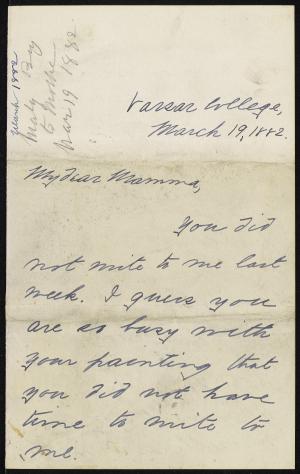 March 1882
Mar 19 1882
Vassar College,
March 19, 1882.
My dear Mamma,
You did
not write to me last
week. I guess you
are so busy with
your painting that
you did not have
time to write to
me.